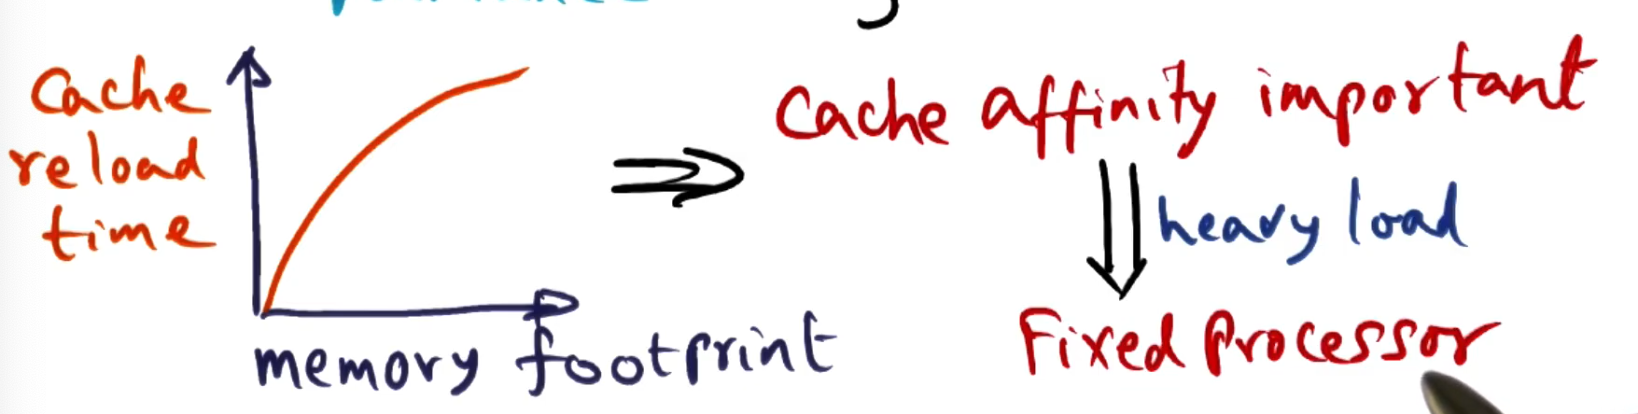 Cache
reload
time
memory footprint
Cache affinity important
heavy load
Fixed Processor